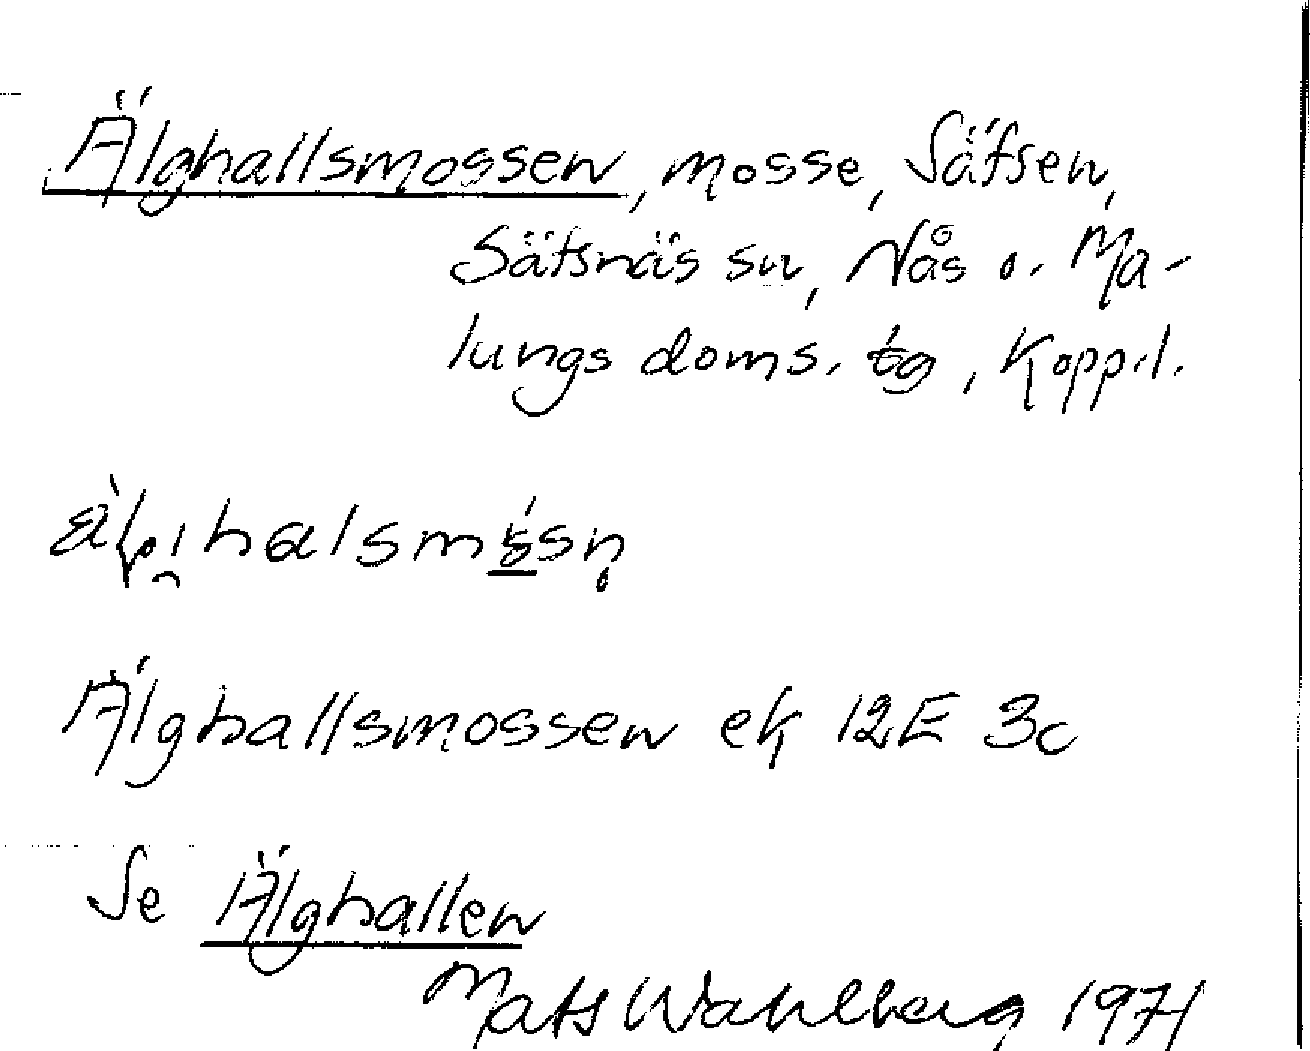 Älghallsmossen, mosse, Säfsen,
Säfsnäs sn, Nås o. Ma-
lungs doms. tg, Kopp.l.
Älghallsmossen ek 12E 3c
Se Älghallen
Mats Wahlberg 1971